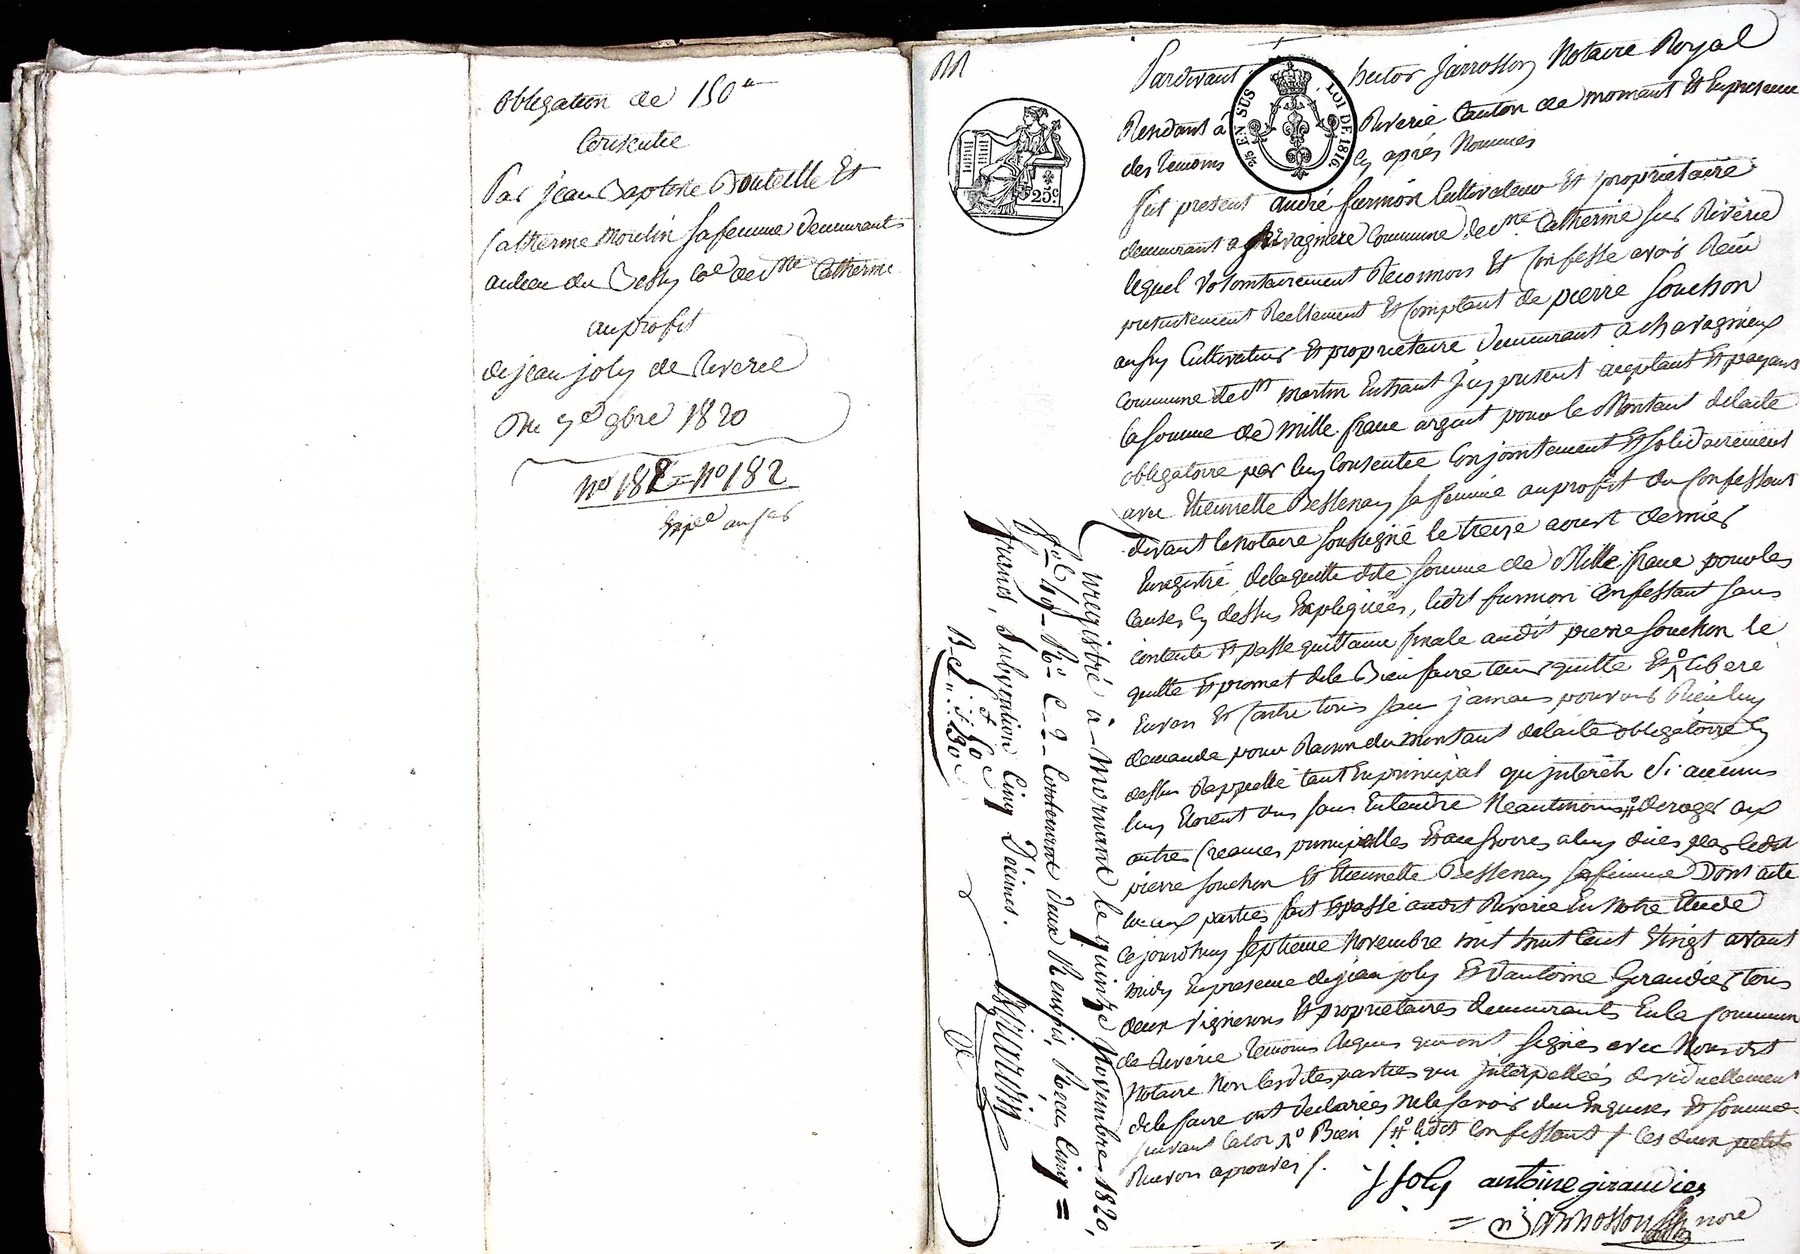 obligation de 150#
Consentie
Par jean Baptiste Bouteille Et
Catherine Moulin sa femme demeurants
au lieu du Dessy coe de ste Catherine
au profit
de jean joly de Riverie
Du 7e 9bre 1820
no 182 = no 182
Expée
Pardevant hector Jarrosson Notaire Royal
Residant à Riverie Canton de mornant Et En presence
des temoins Cy après Nommés
fut present andré furnion Cultivateur Et propriétaire
demeurant a Commune de ste Catherine sur Rivérie
lequel Volontairement Reconnois Et Confesse avoir Reçu
presentement Reellement Et Comptant de pierre souchon
aussy Cultivateur Et propriétaire demeurant a chavagnieux
Commune de st martin En haut Icy present aceptant Et payant
la somme de mille franc argent pour le Montant de l'acte
obligatoire par luy Consentie Conjointement Et solidairement
avec Etiennette Bessenay sa femme au profit du Confessant
devant le Notaire soussigné le treize aoust dernier
Enregistré, de laquelle dite somme de Mille franc pour les
Causes Cy dessus Expliquées, ledit furnion Confessant sans
Contente Et passe quittance finale audit pierre souchon le
quitte Et promet de le Bien faire tenir quitte Et libere
Envers Et Contre tous sans jamais pouvoir Rien luy
demande pour Raison du Montant de l'acte obligatoire Cy
dessus Rappellé tant En principal qu'interêts Si aucuns
luy Etoient dus sans Entendre Neantmoins deroger aux
autres Creances principalles Et accessoires a luy dües par ledit
pierre souchon Et Etiennette Bessenay sa femme Dont acte
lu aux parties fait Et passé audit Riverie En Notre Etude
Ce jourdhuy septieme Novembre mil huit Cent Vingt avant
midy En presence de jean joly Et d'antoine Giraudier tous
deux Vignerons Et propriétaires demeurants En la Commune
de Riverie temoins Requis qui ont signés avec Nous dit
Notaire Non lesdites parties qui Interpellées
de le faire ont declarées ne le savoir de Enquises Et sommées
suivant la loi Bien ledit Confessant Ces deux petits
Renvois aprouvés
j joly antoine giraudier
Jarrosson nore
Enregistré à Mornant le quinze Novembre 1820,
fol 40 Ro C 2 Contenant deux Renvois, Reçu Cinq
francs, Subvention Cinq Décimes.